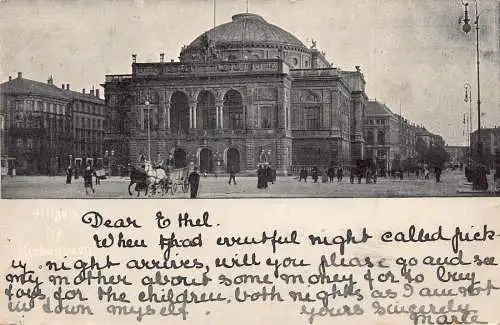 Hilsen
fra
Kjøbenhavn
Dear Ethel.
When that eventful night called pick-
y, night arrives, will you please go and see
my mother about some money for to buy
toys for the children, both nights as I am not
in town myself. Yours sincerely
Marie